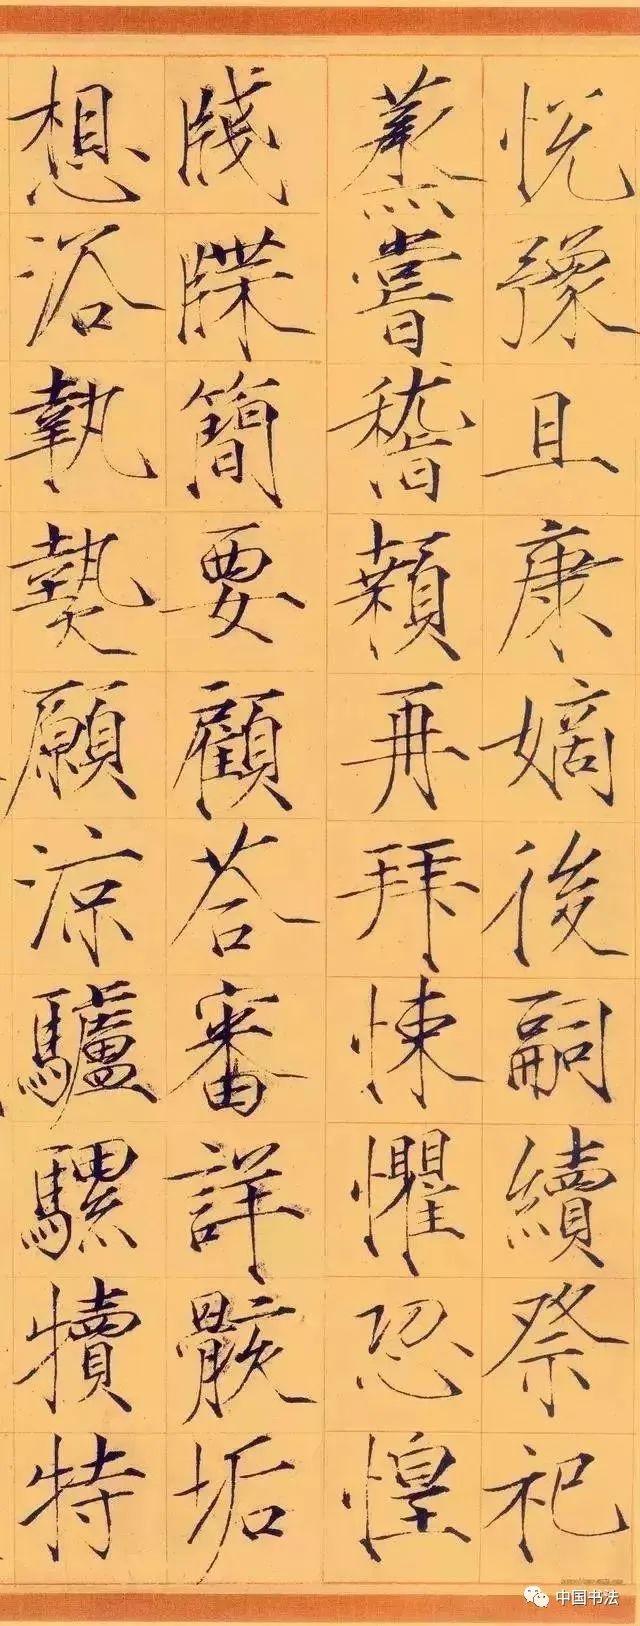 悅豫且康嫡後嗣續祭祀
蒸嘗稽顙再拜悚懼恐惶
牋牒簡要顧荅審詳骸垢
想浴執熱願涼驢騾犢特
中国书法